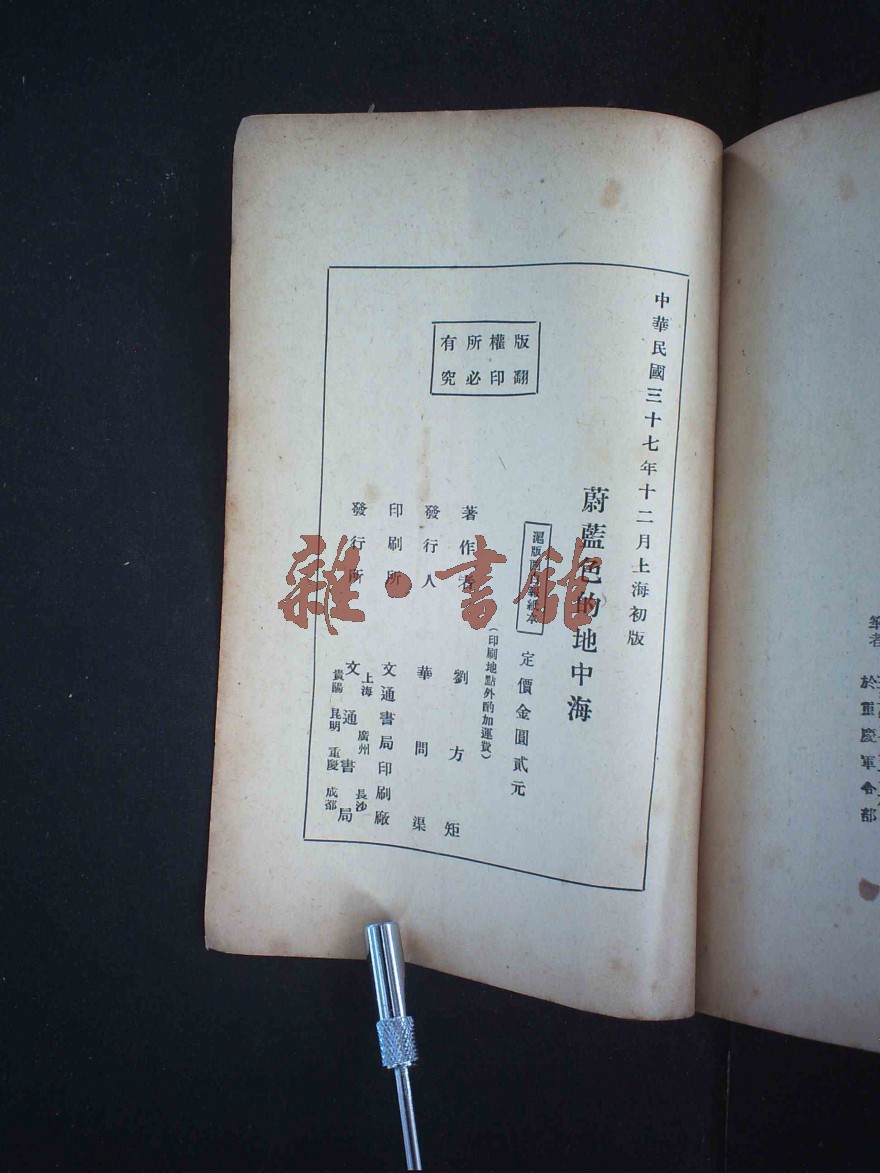 中華民國三十七年十二月上海初版
蔚藍色的地中海
滬版白報紙本
定價金圓貳元
(印刷地點外酌加運費)
版權所有
翻印必究
著作者 劉方矩
發行人 華問渠
印刷所 文通書局印刷廠
發行所 文通書局
上海 廣州 長沙
貴陽 昆明 重慶 成都
雜·書館
筆者
於重慶軍令部